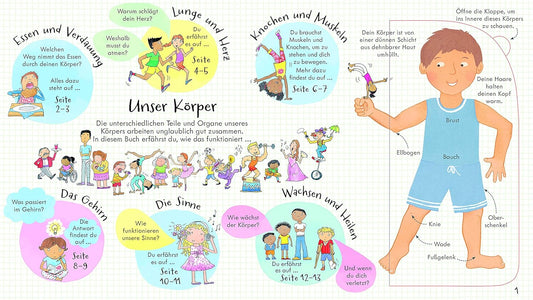 Essen und Verdauung
Welchen
Weg nimmt das Essen
durch deinen Körper?
Alles dazu
steht auf ...
Seite
2–3
Lunge und Herz
Warum schlägt
dein Herz?
Weshalb
musst du
atmen?
Du
erfährst
es auf ...
Seite
4–5
Knochen und Muskeln
Du brauchst
Muskeln und
Knochen, um zu
stehen und dich
zu bewegen.
Mehr dazu
findest du auf ...
Seite 6–7
Unser Körper
Die unterschiedlichen Teile und Organe unseres
Körpers arbeiten unglaublich gut zusammen.
In diesem Buch erfährst du, wie das funktioniert ...
Das Gehirn
Was passiert
im Gehirn?
Die
Antwort
findest du
auf ...
Seite
8–9
Die Sinne
Wie
funktionieren
unsere Sinne?
Du erfährst
es auf ...
Seite
10–11
Wachsen und Heilen
Wie wächst
der Körper?
Du erfährst
es auf ...
Seite 12–13
Und wenn
du dich
verletzt?
Öffne die Klappe, um
ins Innere dieses Körpers
zu schauen.
Dein Körper ist von
einer dünnen Schicht
aus dehnbarer Haut
umhüllt.
Deine Haare
halten deinen
Kopf
warm.
Brust
Ellbogen
Bauch
Ober-
schenkel
Knie
Wade
Fußgelenk
1